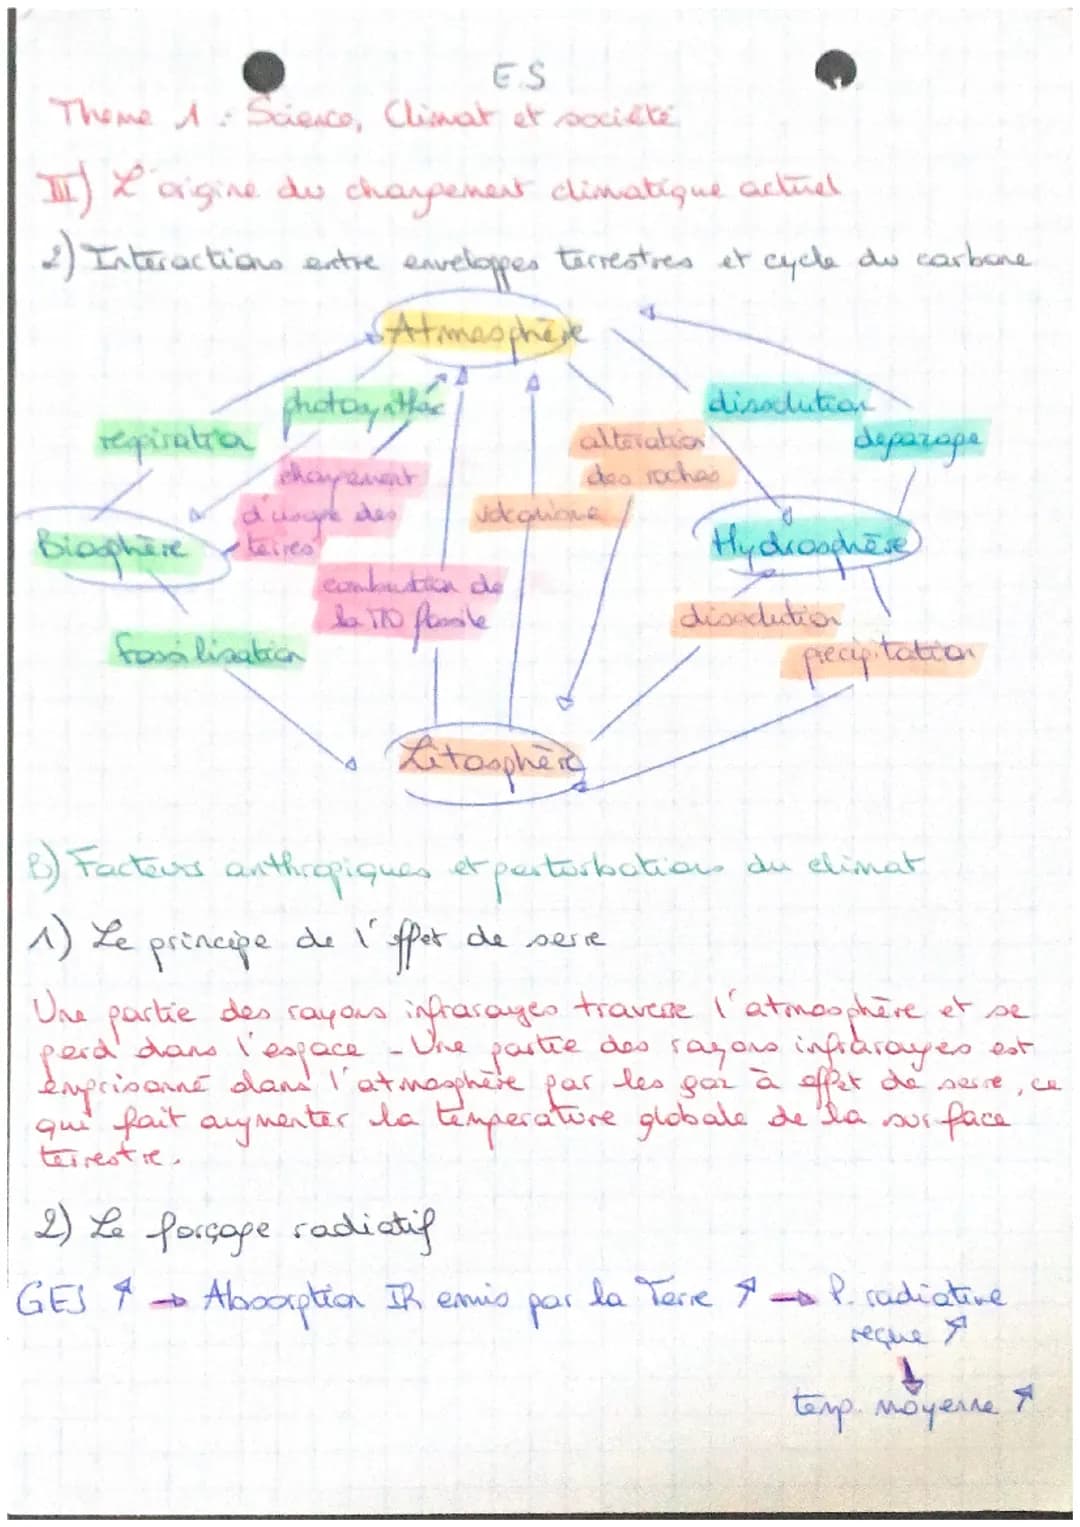 E.S
Thème 1 : Science, Climat et société
III) L'origine du changement climatique actuel
2) Interactions entre enveloppes terrestres et cycle du carbone
Atmosphère
photosynthèse
dissolution
respiration
altération
des roches
dégazage
changement
d'usage des
terres
volcanisme
Biosphère
Hydrosphère
combustion de
la MO fossile
dissolution
fossilisation
précipitation
Litosphère
B) Facteurs anthropiques et pertorbations du climat
1) Le principe de l'effet de serre
Une partie des rayons infrarouges traverse l'atmosphère et se
perd dans l'espace - Une partie des rayons infrarouges est
emprisonné dans l'atmosphère par les gaz à effet de serre, ce
qui fait augmenter la température globale de la surface
terrestre.
2) Le forçage radiatif
GES ↗ → Absorption IR émis par la Terre ↗ → P. radiative
reçue ↗
↓
temp. moyenne ↗